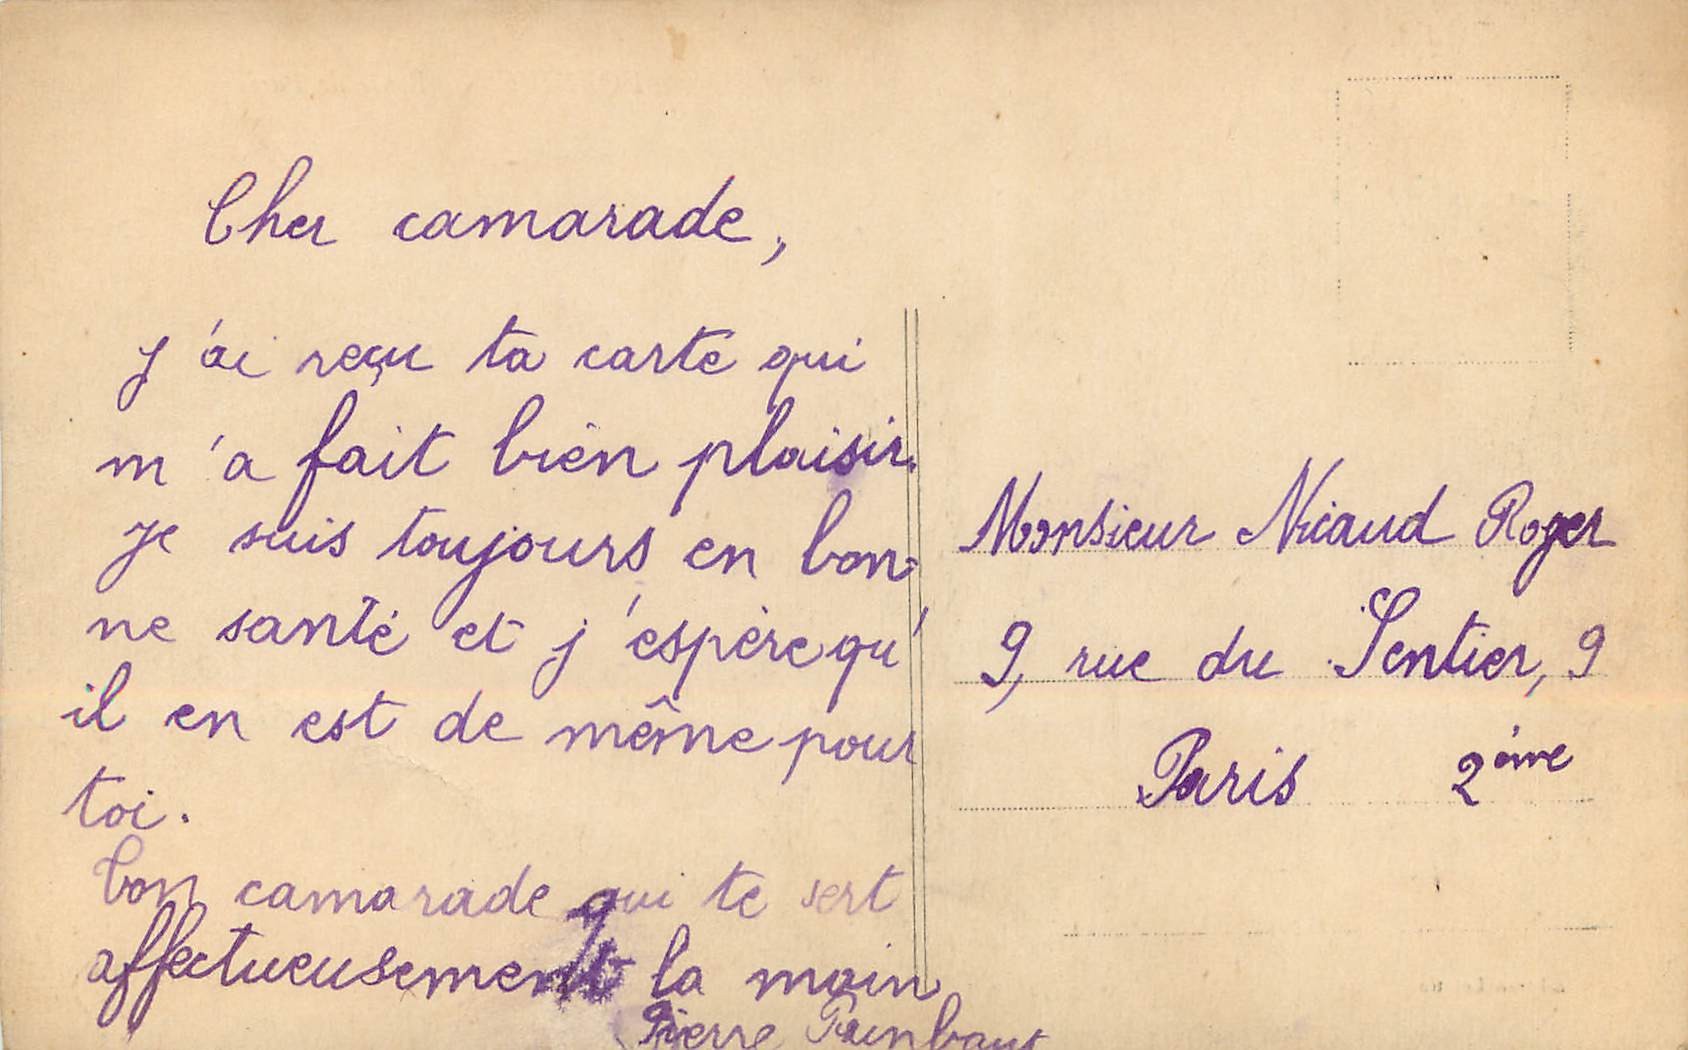 Cher camarade,
j'ai reçu ta carte qui
m'a fait bien plaisir.
je suis toujours en bon-
ne santé et j'espère qu'
il en est de même pour
toi.
bon camarade qui te sert
affectueusement la main
Pierre
Monsieur Nicaud Roger
9, rue du Sentier, 9
Paris 2ème